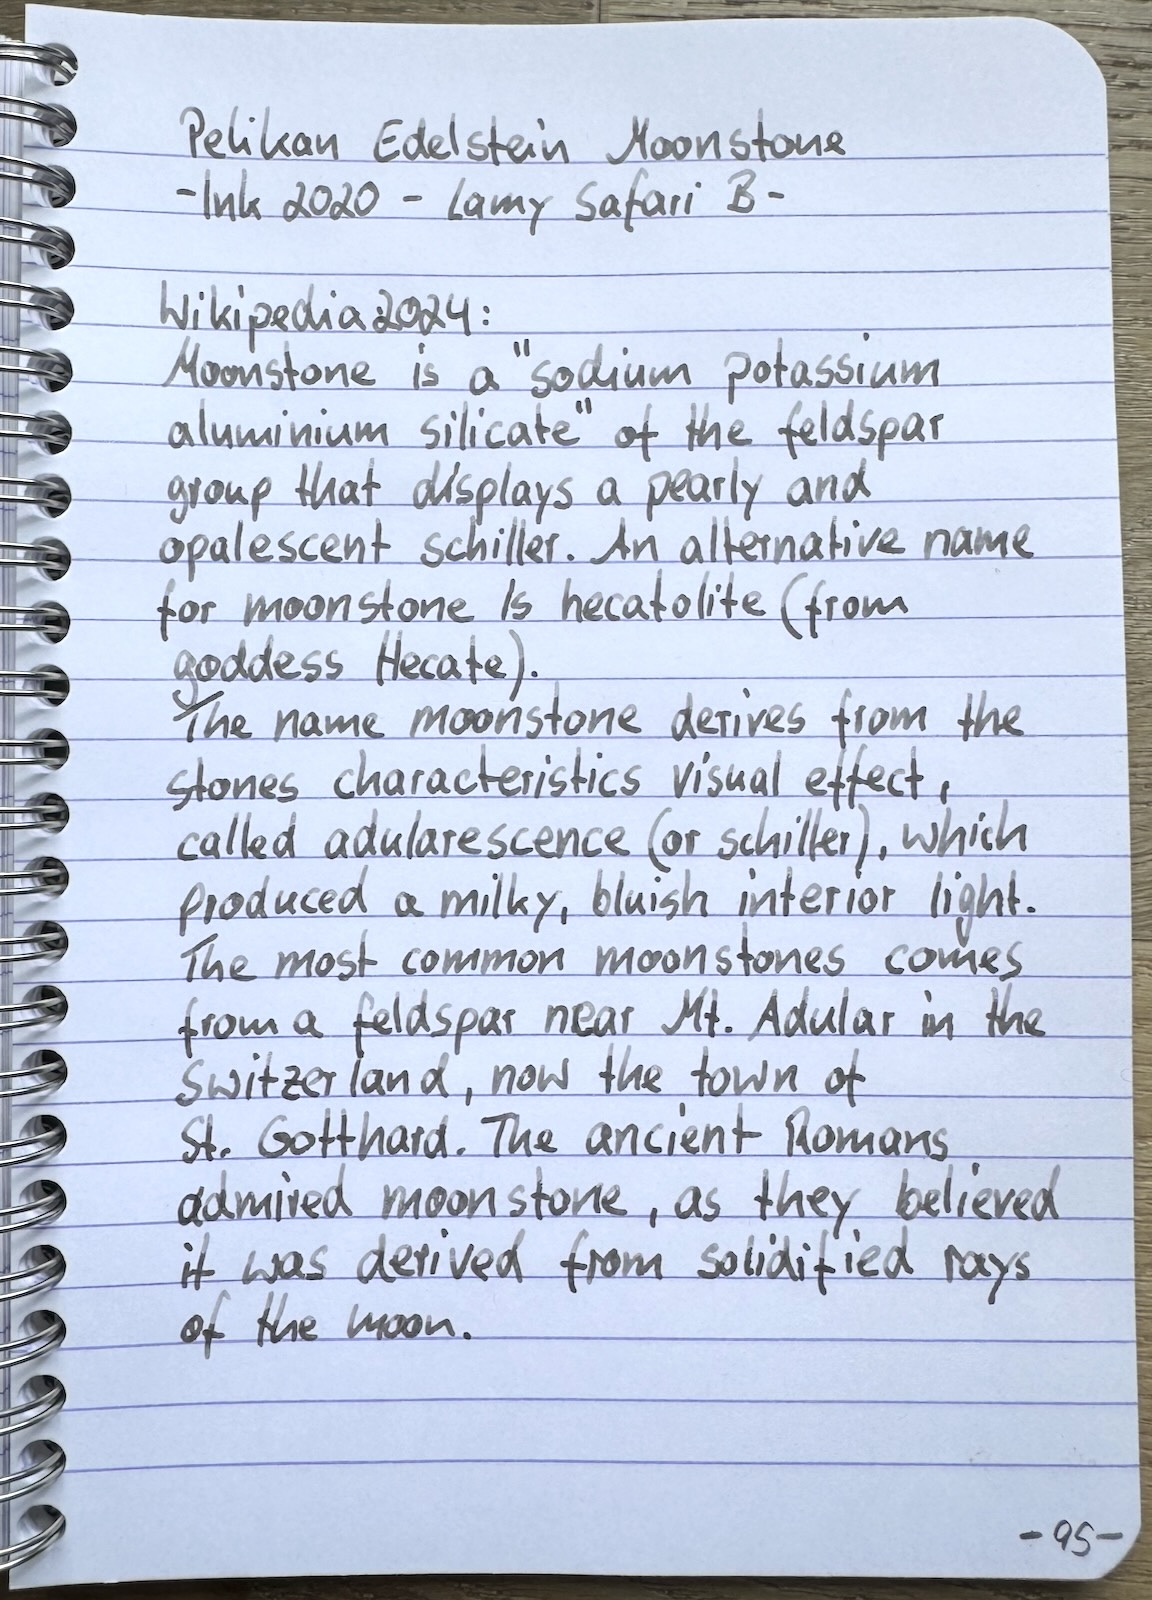 Pelikan Edelstein Moonstone
-Ink 2020 - Lamy Safari B-
Wikipedia 2024:
Moonstone is a "sodium potassium
aluminium silicate" of the feldspar
group that displays a pearly and
opalescent schiller. An alternative name
for moonstone is hecatolite (from
goddess Hecate).
The name moonstone derives from the
stones characteristics visual effect,
called adularescence (or schiller), which
produced a milky, bluish interior light.
The most common moonstones comes
from a feldspar near Mt. Adular in the
Switzerland, now the town of
St. Gotthard. The ancient Romans
admired moonstone, as they believed
it was derived from solidified rays
of the moon.
-95-